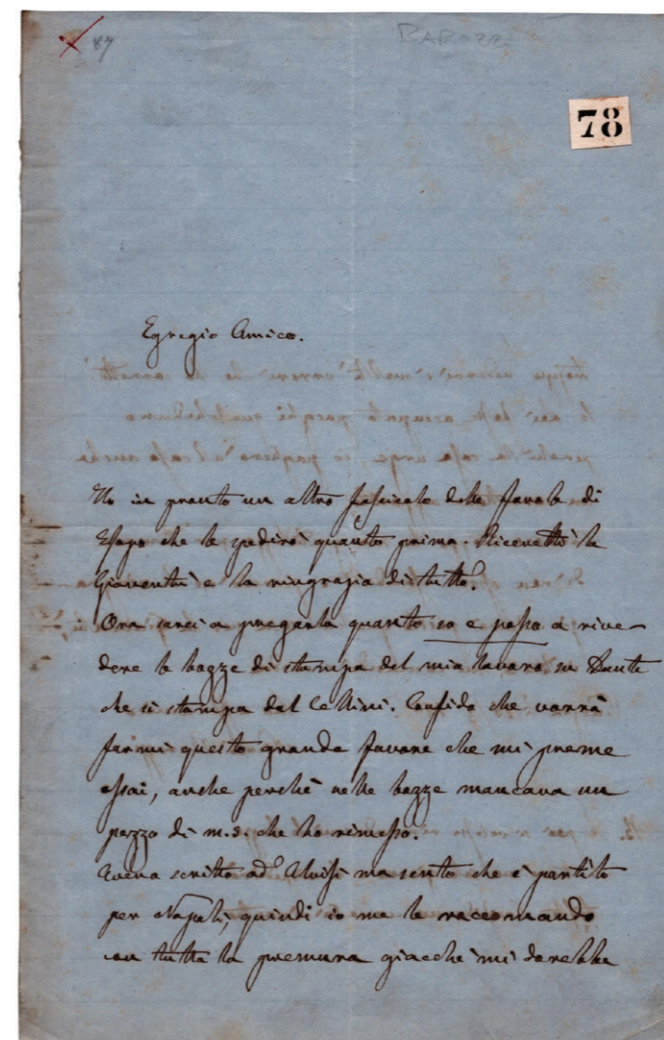 87
BAROZZI
78
Egregio Amico.
Ho in pronto un altro fascicolo delle favole di
Esopo che le spedirò quanto prima. Ricevetti la
Gioventù e la ringrazio di tutto.
Ora sarei a pregarla quanto so e posso a rive-
dere le bozze di stampa del mio lavoro su Dante
che si stampa dal Cellini. Confido che vorrà
farmi questo grande favore che mi preme
assai, anche perchè nelle bozze mancava un
pezzo di m.s. che ho rimesso.
Aveva scritto ad Alvisi ma sento che è partito
per Napoli, quindi io me le raccomando
con tutta la premura giacchè mi darebbe